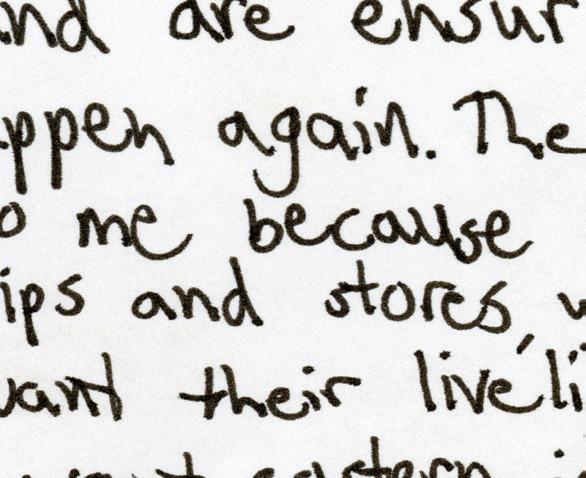 and are ensur
ppen again. The
o me because
ips and stores, w
want their liveli
eastern